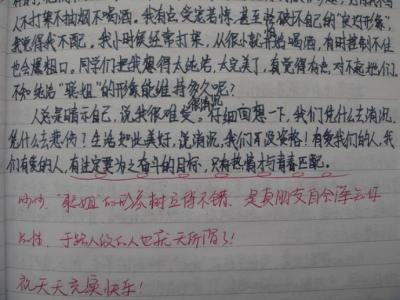 人不打架不抽烟不喝酒。我有点受宠若惊,甚至想破坏自己的“良好形象”,
我觉得我不配。我小时候经常打架,从很小就开始喝酒,有时控制不住
也会爆粗口。同学们把我想得太纯洁,太完美了,真觉得有点对不起他们。
不知纯洁“聪姐”的形象能维持多久呢?
人总是暗示自己,说我很难受,很消沉。仔细回想一下,我们凭什么去消沉,
凭什么去悲伤?生活如此美好,说消沉,我们可没资格!有爱我们的人,我
们有爱的人,有注定要为之奋斗的目标,只有热情才与青春匹配。
“聪姐”的形象树立得不错,是真朋友自会连
于路人
祝天天充实快乐!